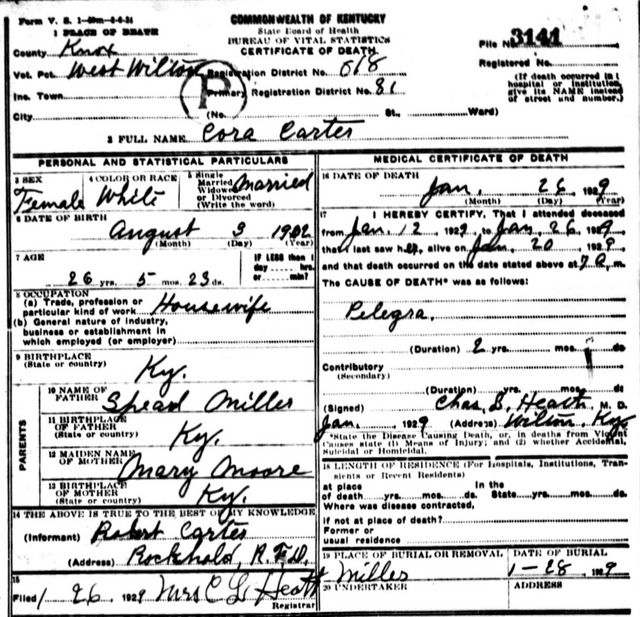 Form V. S. 1-50m-5-6-24
COMMONWEALTH OF KENTUCKY
State Board of Health
BUREAU OF VITAL STATISTICS
CERTIFICATE OF DEATH
1 PLACE OF DEATH
County Knox
File No. 3141
Registered No.
Vot. Pct. West Wilton Registration District No. 618
(If death occurred in a hospital or institution, give its NAME instead of street and number.)
Inc. Town P Primary Registration District No. 81
City (No. St., Ward)
2 FULL NAME Cora Carter
PERSONAL AND STATISTICAL PARTICULARS
3 SEX Female
4 COLOR OR RACE White
5 Single Married Widowed or Divorced (Write the word) Married
6 DATE OF BIRTH August 3 1902
(Month) (Day) (Year)
7 AGE 26 yrs. 5 mos. 23 ds.
IF LESS than 1 day hrs. or min.?
8 OCCUPATION
(a) Trade, profession or particular kind of work Housewife
(b) General nature of industry, business or establishment in which employed (or employer)
9 BIRTHPLACE
(State or country) Ky.
PARENTS
10 NAME OF FATHER Spead Miller
11 BIRTHPLACE OF FATHER
(State or country) Ky.
12 MAIDEN NAME OF MOTHER Mary Moore
13 BIRTHPLACE OF MOTHER
(State or country) Ky.
14 THE ABOVE IS TRUE TO THE BEST OF MY KNOWLEDGE
(Informant) Robert Carter
(Address) Rockhold, R.F.D.
15
Filed 1 26 1929 Mrs C L Heath
Registrar
MEDICAL CERTIFICATE OF DEATH
16 DATE OF DEATH
Jan. 26 1929
(Month) (Day) (Year)
17 I HEREBY CERTIFY, That I attended deceased
from Jan. 12 1929 to Jan. 26 1929
that I last saw her alive on Jan. 20 1929
and that death occurred on the date stated above at 7 a.m.
The CAUSE OF DEATH* was as follows:
Pelegra.
(Duration) 2 yrs. mos. ds
Contributory
(Secondary)
(Duration) yrs. mos. ds
(Signed) Chas. S. Heath M. D.
Jan. 1929 (Address) Wilton, Ky.
*State the Disease Causing Death, or, in deaths from Violent
Causes state (1) Means of Injury; and (2) whether Accidental,
Suicidal or Homicidal.
18 LENGTH OF RESIDENCE (For Hospitals, Institutions, Transients or Recent Residents)
at place of death yrs. mos. ds. In the State yrs. mos. ds.
Where was disease contracted,
if not at place of death?
Former or
usual residence
19 PLACE OF BURIAL OR REMOVAL Miller
DATE OF BURIAL 1-28 1929
20 UNDERTAKER
ADDRESS